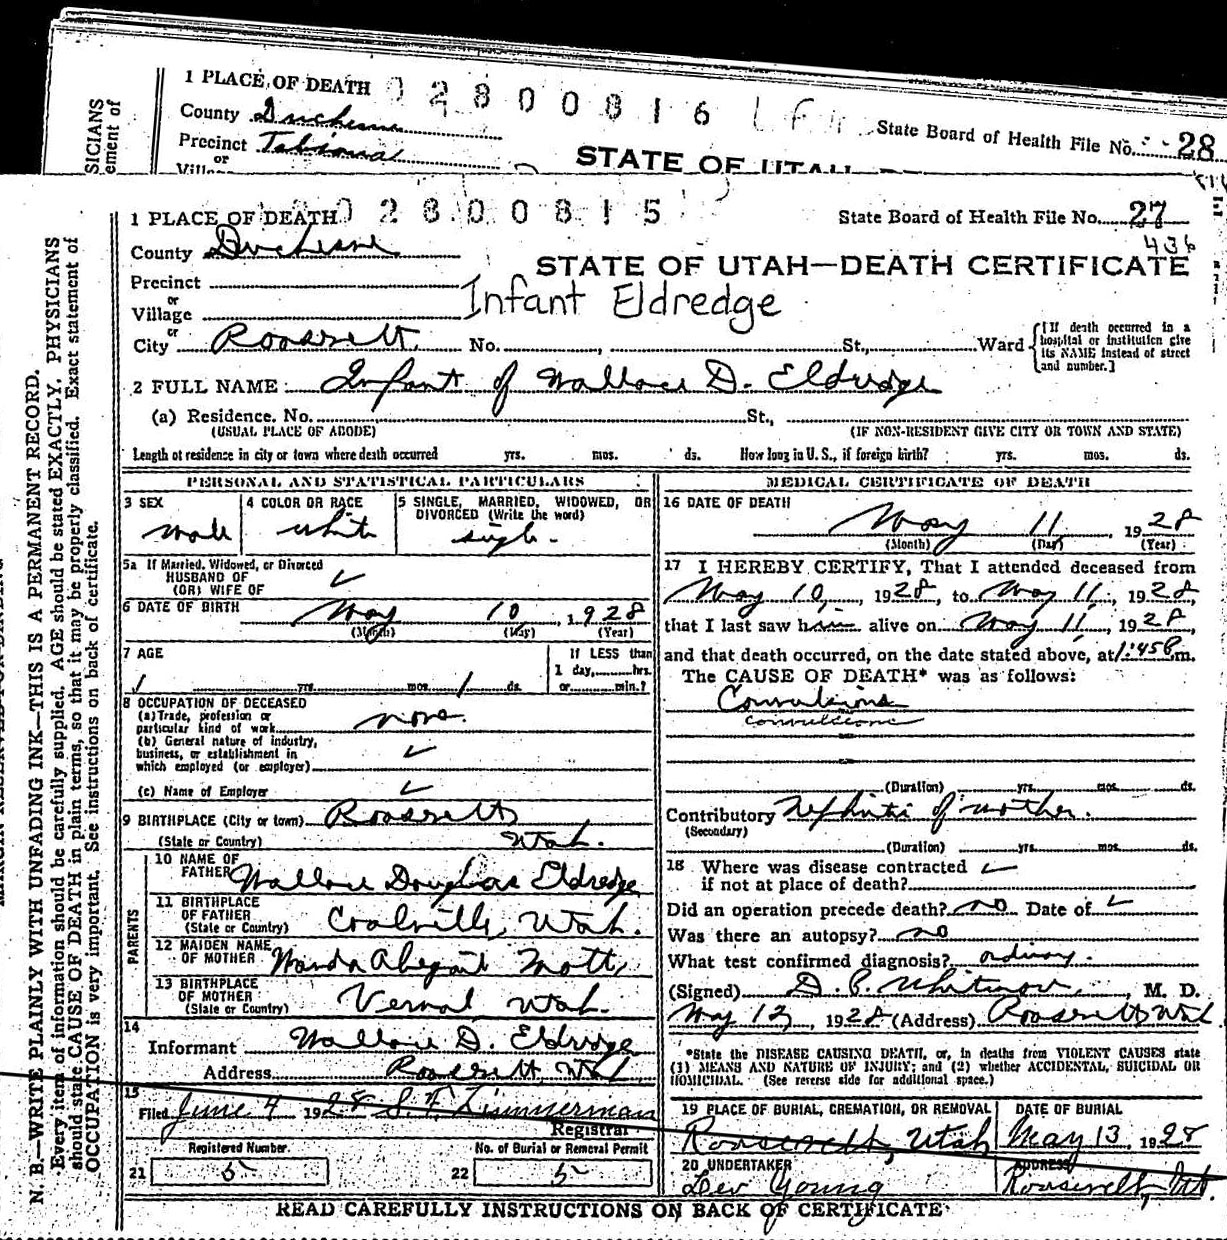 1 PLACE OF DEATH 0 2 8 0 0 8 1 6
County Duchesne
State Board of Health File No. 28
Precinct Tabiona
or
STATE OF UTAH
SICIANS
ement of
1 PLACE OF DEATH 0 2 8 0 0 8 1 5
State Board of Health File No. 27
436
County Duchesne
STATE OF UTAH—DEATH CERTIFICATE
Precinct
or
Village
Infant Eldredge
or
City Roosevelt No. St., Ward
[If death occurred in a hospital or institution give its NAME instead of street and number.]
2 FULL NAME Infant of Wallace D. Eldredge
(a) Residence. No. St.,
(USUAL PLACE OF ABODE) (IF NON-RESIDENT GIVE CITY OR TOWN AND STATE)
Length of residence in city or town where death occurred yrs. mos. ds. How long in U. S., if foreign birth? yrs. mos. ds.
PERSONAL AND STATISTICAL PARTICULARS
3 SEX
male
4 COLOR OR RACE
white
5 SINGLE, MARRIED, WIDOWED, OR
DIVORCED (Write the word)
single
5a If Married, Widowed, or Divorced
HUSBAND OF
(OR) WIFE OF
6 DATE OF BIRTH May 10, 1928
(Month) (Day) (Year)
7 AGE
If LESS than
1 day, hrs.
yrs. mos. 1 ds. or min.?
8 OCCUPATION OF DECEASED
(a) Trade, profession or
particular kind of work none.
(b) General nature of industry,
business, or establishment in
which employed (or employer)
(c) Name of Employer
9 BIRTHPLACE (City or town) Roosevelt
(State or Country) Utah.
PARENTS
10 NAME OF
FATHER Wallace Douglas Eldredge
11 BIRTHPLACE
OF FATHER
(State or Country) Coalville, Utah.
12 MAIDEN NAME
OF MOTHER Wanda Abegail Mott,
13 BIRTHPLACE
OF MOTHER
(State or Country) Vernal, Utah.
14
Informant Wallace D. Eldredge
Address Roosevelt, Utah
15
Filed June 4 1928 S. F. Zimmerman
Registrar
Registered Number
21 5
No. of Burial or Removal Permit
22 5
MEDICAL CERTIFICATE OF DEATH
16 DATE OF DEATH
May 11 1928
(Month) (Day) (Year)
17 I HEREBY CERTIFY, That I attended deceased from
May 10, 1928, to May 11, 1928,
that I last saw him alive on May 11, 1928,
and that death occurred, on the date stated above, at 1:45P m.
The CAUSE OF DEATH* was as follows:
Convulsions
convulsions
(Duration) yrs. mos. ds.
Contributory Nephritis of mother.
(Secondary)
(Duration) yrs. mos. ds.
18 Where was disease contracted
if not at place of death?
Did an operation precede death? no Date of
Was there an autopsy? no
What test confirmed diagnosis? ordinary.
(Signed) D. P. Whitmore, M. D.
May 12, 1928 (Address) Roosevelt Utah
*State the DISEASE CAUSING DEATH, or, in deaths from VIOLENT CAUSES state
(1) MEANS AND NATURE OF INJURY; and (2) whether ACCIDENTAL, SUICIDAL OR
HOMICIDAL. (See reverse side for additional space.)
19 PLACE OF BURIAL, CREMATION, OR REMOVAL
Roosevelt, Utah
DATE OF BURIAL
May 13 1928
20 UNDERTAKER
Lev Young
ADDRESS
Roosevelt, Ut.
READ CAREFULLY INSTRUCTIONS ON BACK OF CERTIFICATE
N. B.—WRITE PLAINLY WITH UNFADING INK—THIS IS A PERMANENT RECORD.
Every item of information should be carefully supplied. AGE should be stated EXACTLY. PHYSICIANS
should state CAUSE OF DEATH in plain terms, so that it may be properly classified. Exact statement of
OCCUPATION is very important. See instructions on back of certificate.